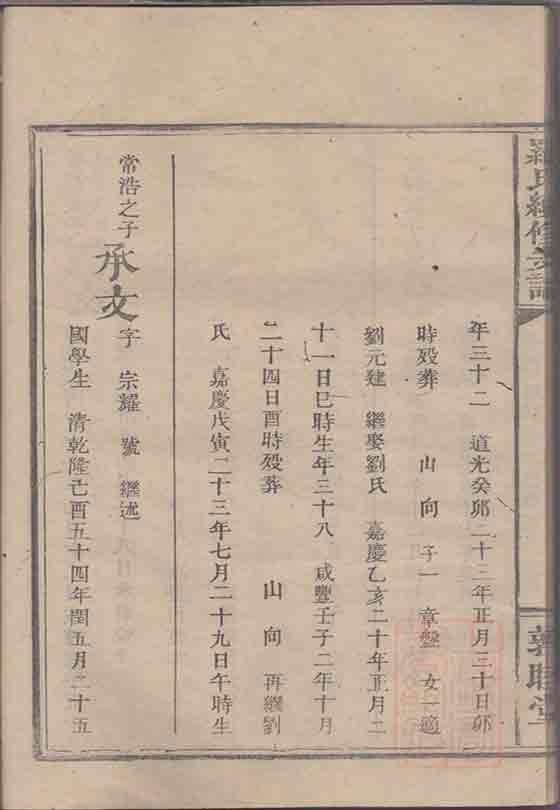 羅氏續修支譜
敦睦堂
年三十二 道光癸卯二十三年正月三十日卯
時殁葬 山 向 子一 章盤 女一適
劉元建 繼娶劉氏 嘉慶乙亥二十年正月二
十一日巳時生年三十八 咸豐壬子二年十月
二十四日酉時殁葬 山 向 再繼劉
氏 嘉慶戊寅二十三年七月二十九日午時生
常浩之子 承文 字 宗耀 號 繼述
國學生 清乾隆己酉五十四年閏五月二十五